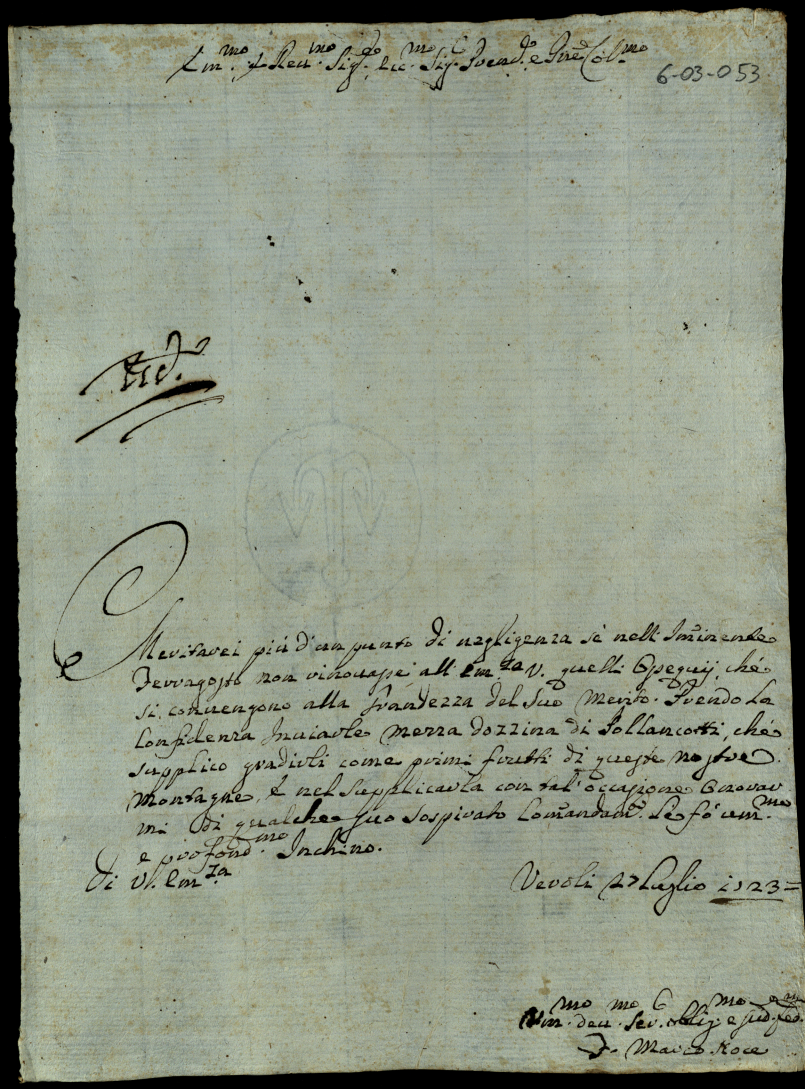 Em.mo e Reu.mo Sig.re Sig. Pnē Col.mo
6-03-053
Meritarei più d'un punto di negligenza sè nell'Iminente
Ferragosto non rinouassi all'Em.za V. quelli Ossequij, ché
si conuengono alla Grandezza del Suo Merito. Prendo La
Confidenza Inuiarle mezza dozzina di Pollancotti, ché
supplico gradirli come primi frutti di queste nostre
Montagne, E nel Supplicarla con tal'occasione Onorar
mi di qualche Suo sospirato Comandam.to Le fò um.mo
e profond.mo Inchino.
Di V. Em.za
Veroli 27 Luglio 1723=
Um. deu. Ser. obblig.
D. Marco